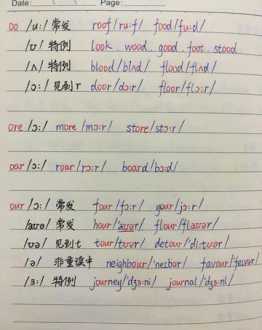 Date: Page:
oo /u:/ 常发 roof/ru:f/ food/fu:d/
/ʊ/ 特例 look wood good foot stood
/ʌ/ 特例 blood/blʌd/ flood/flʌd/
/ɔ:/ 见到r door/dɔ:r/ floor/flɔ:r/
ore /ɔ:/ more/mɔ:r/ store/stɔ:r/
oar /ɔ:/ roar/rɔ:r/ board/bɔ:d/
our /ɔ:/ 常发 four/fɔ:r/ your/jɔ:r/
/aʊə/ 常发 hour/aʊər/ flour/flaʊər/
/ʊə/ 见到t tour/tʊər/ detour/di:tʊər/
/ə/ 非重读中 neighbour/neɪbər/ favour/feɪvər/
/ɜ:/ 特例 journey/dʒɜ:ni/ journal/dʒɜ:nl/